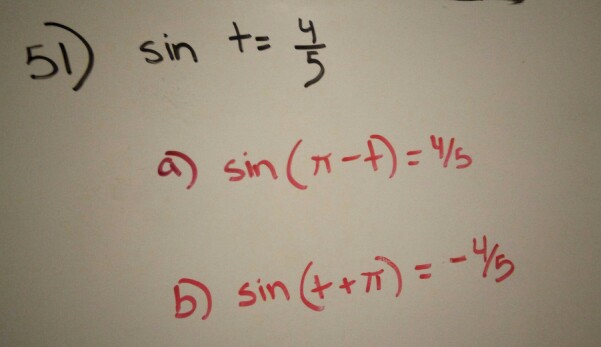 51) sin t = 4/5
a) sin (π - t) = 4/5
b) sin (t + π) = - 4/5